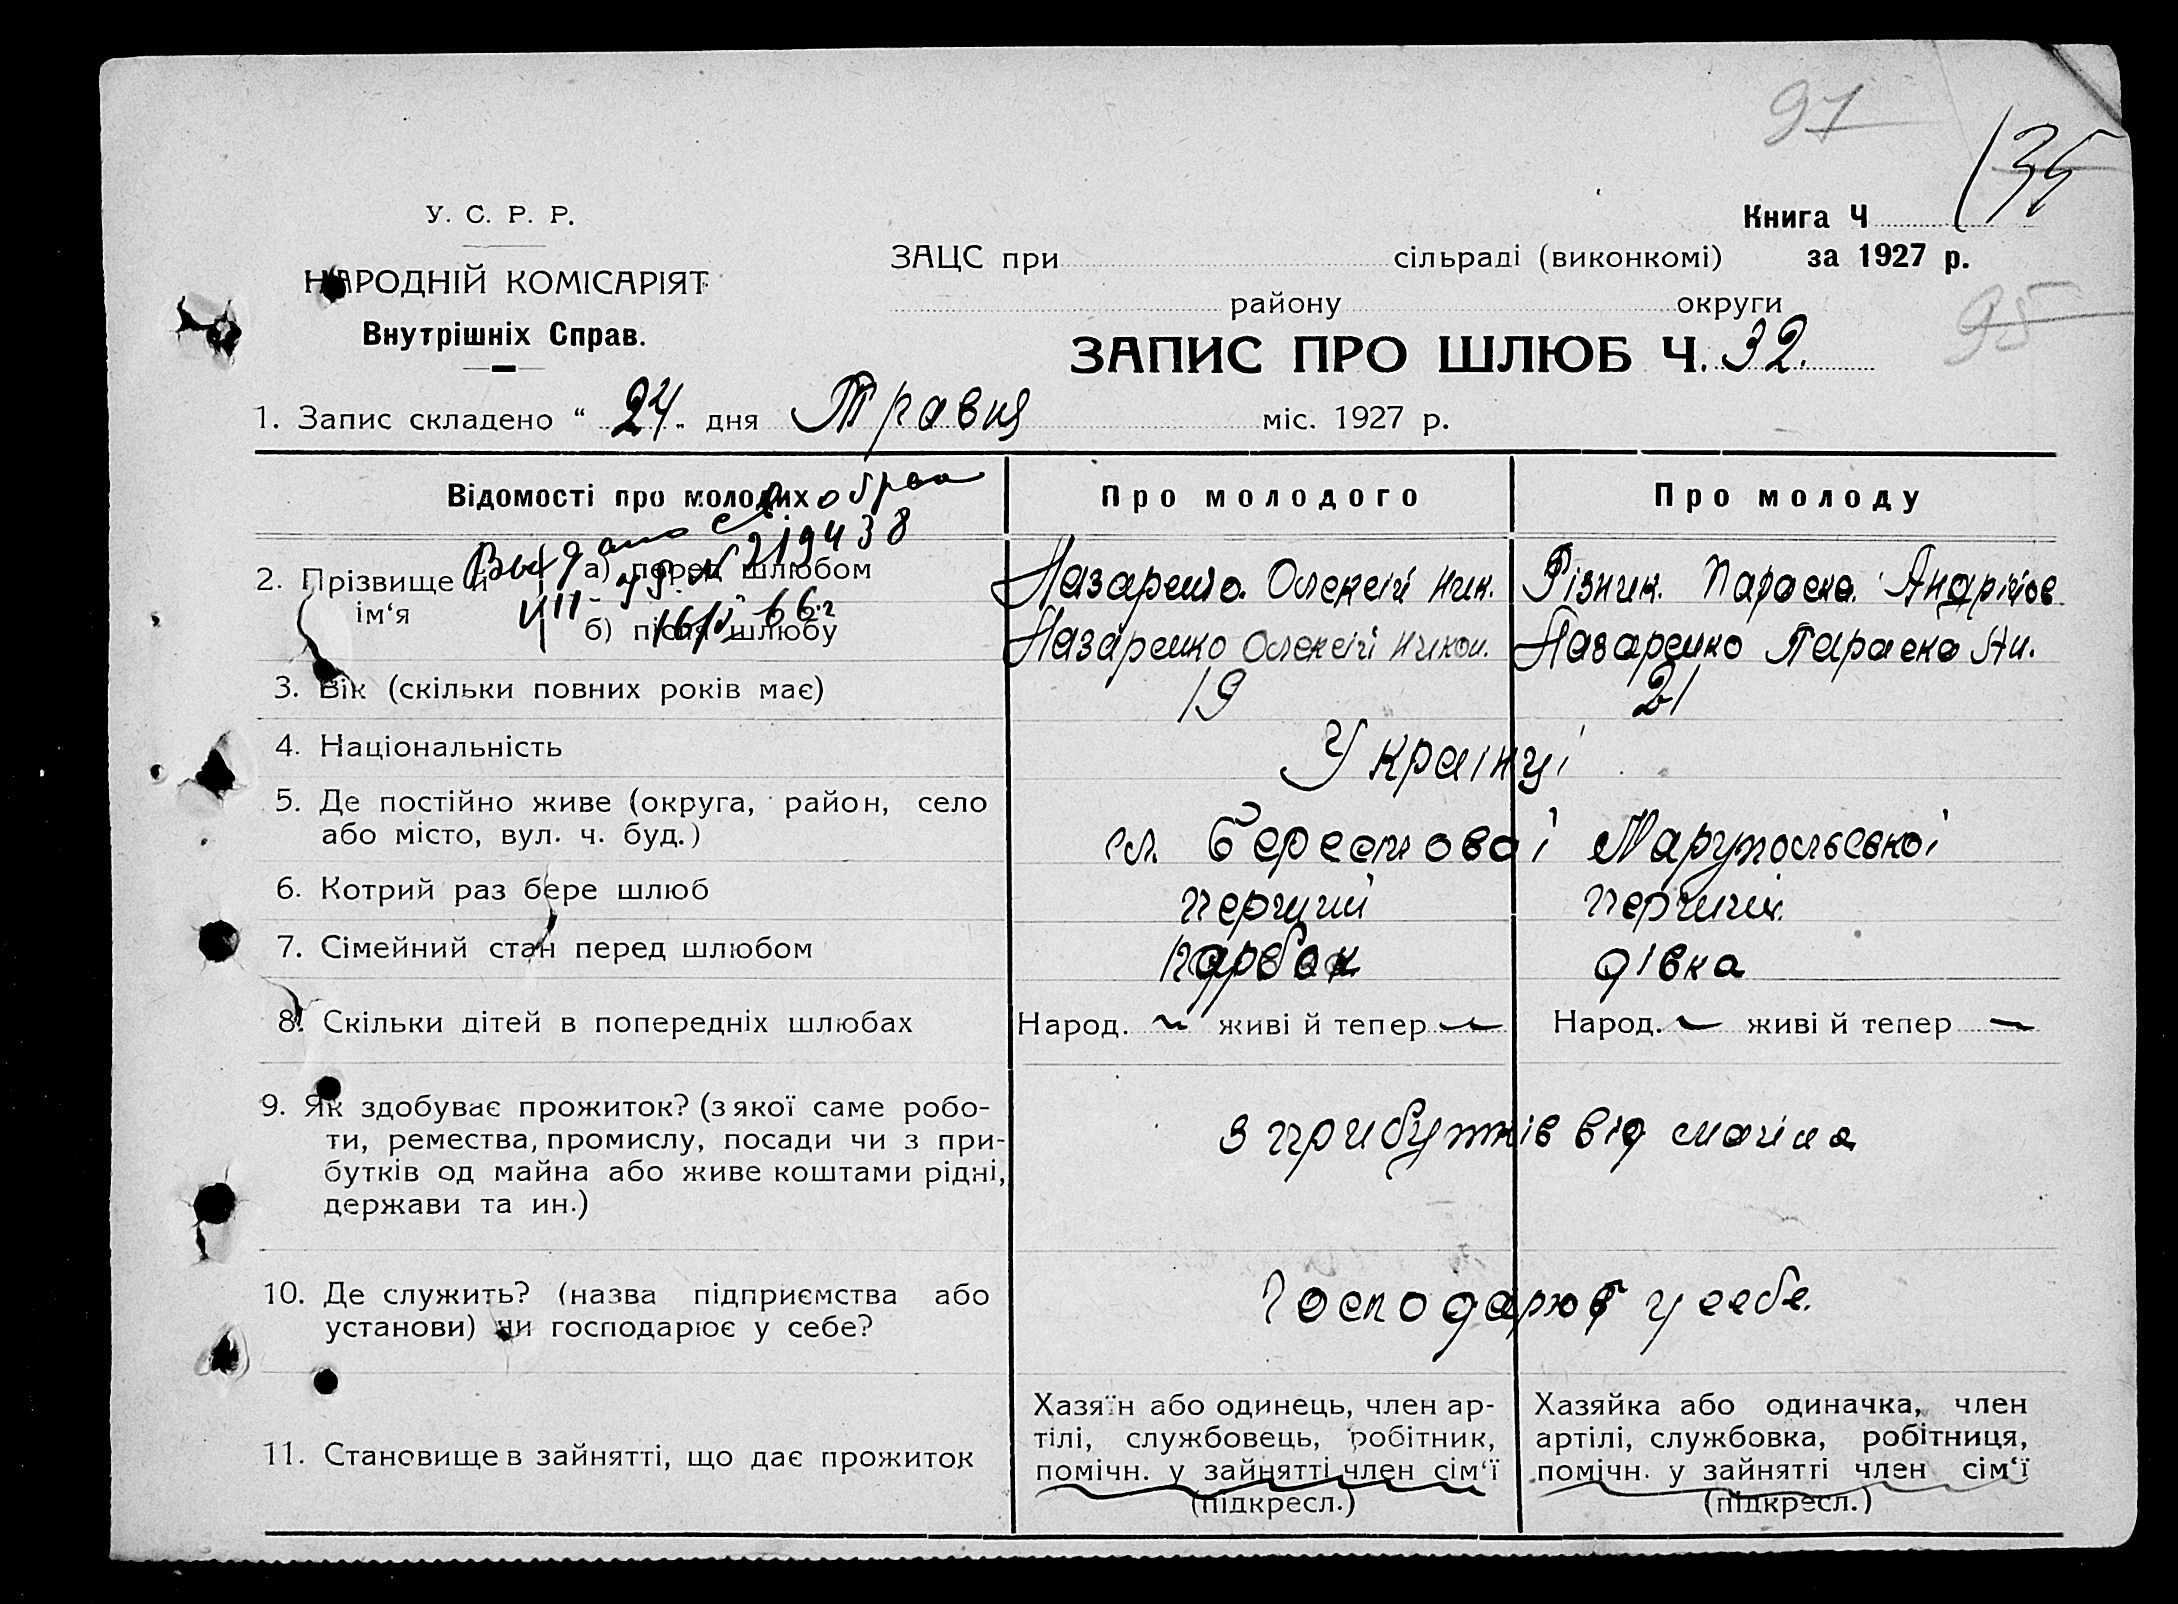 97
135
У. С. Р. Р.
Книга Ч
НАРОДНІЙ КОМІСАРІЯТ
ЗАЦС при сільраді (виконкомі) за 1927 р.
Внутрішніх Справ.
району округи
95
ЗАПИС ПРО ШЛЮБ Ч. 32.
1. Запис складено “ 24 „ дня Травця міс. 1927 р.
Відомості про молодих
Про молодого
Про молоду
219438
2. Прізвище й ім‘я
а) перед шлюбом
Назаренко Олексій Ник.
Різник Параска Андріїов
б) після шлюбу
Назаренко Олексій Никол.
Назаренко Параска Ан.
3. Вік (скільки повних років має)
19
21
4. Національність
Украінці
5. Де постійно живе (округа, район, село
або місто, вул. ч. буд.)
сл. Берестовоі Марупольськоі
6. Котрий раз бере шлюб
перший
перший
7. Сімейний стан перед шлюбом
парубок
дівка
8. Скільки дітей в попередніх шлюбах
Народ. — живі й тепер —
Народ. — живі й тепер —
9. Як здобуває прожиток? (з якої саме робо-
ти, ремества, промислу, посади чи з при-
бутків од майна або живе коштами рідні,
держави та ин.)
з прибутків від
10. Де служить? (назва підприємства або
установи) чи господарює у себе?
Господарюють у себе.
11. Становище в зайнятті, що дає прожиток
Хазяїн або одинець, член ар-
тілі, службовець, робітник,
помічн. у зайнятті член сім‘ї
(підкресл.)
Хазяйка або одиначка, член
артілі, службовка, робітниця,
помічн. у зайнятті член сім‘ї
(підкресл.)